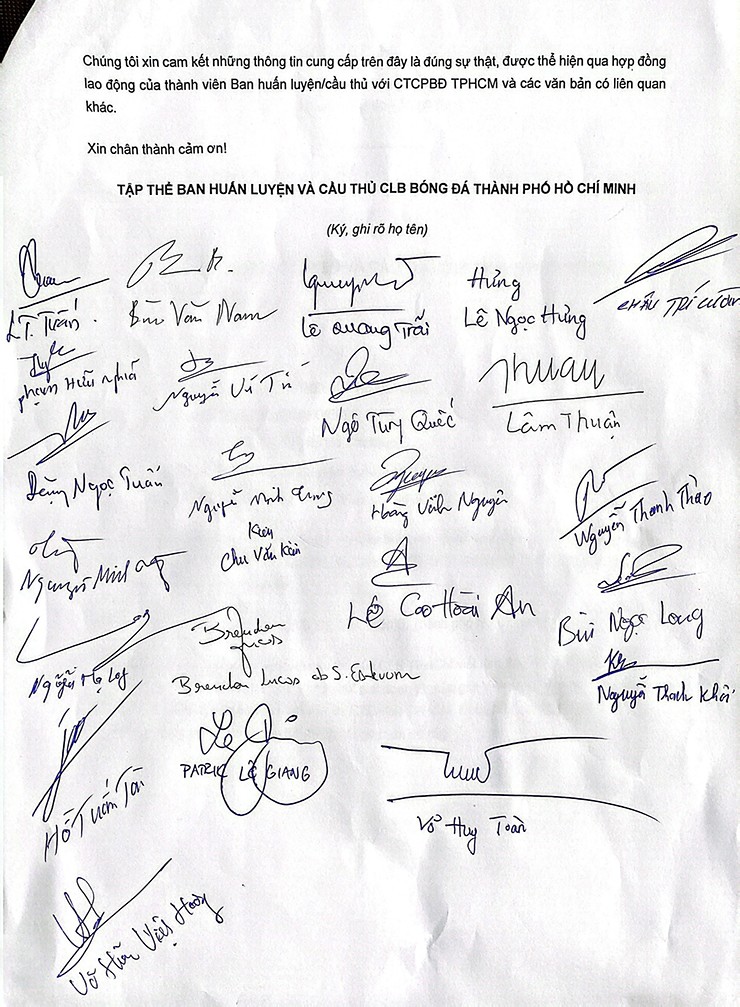 Chúng tôi xin cam kết những thông tin cung cấp trên đây là đúng sự thật, được thể hiện qua hợp đồng
lao động của thành viên Ban huấn luyện/cầu thủ với CTCPBĐ TPHCM và các văn bản có liên quan
khác.
Xin chân thành cảm ơn!
TẬP THỂ BAN HUẤN LUYỆN VÀ CẦU THỦ CLB BÓNG ĐÁ THÀNH PHỐ HỒ CHÍ MINH
(Ký, ghi rõ họ tên)
Hưng
L.T. Tuấn
Bùi Văn Nam
Lê Quang Trãi
Lê Ngọc Hưng
CHÂU TRÍ
Phạm Hữu Nghĩa
Nguyễn
Ngô Tùng Quốc
Thuận
Lâm Thuận
Đặng Ngọc Tuấn
Nguyễn Minh Trung
Hoàng Vĩnh Nguyên
Nguyễn Thanh Thảo
Kiên
Chu Văn Kiên
Nguyễn Minh
Lê Cao Hoài An
Bùi Ngọc Long
Brendon
Lucas
Brendon Lucas
Nguyễn
Nguyễn Thanh Khôi
PATRIK LÊ GIANG
Hồ Tuấn Tài
Võ Huy Toàn
Võ Hữu Việt Hoàng